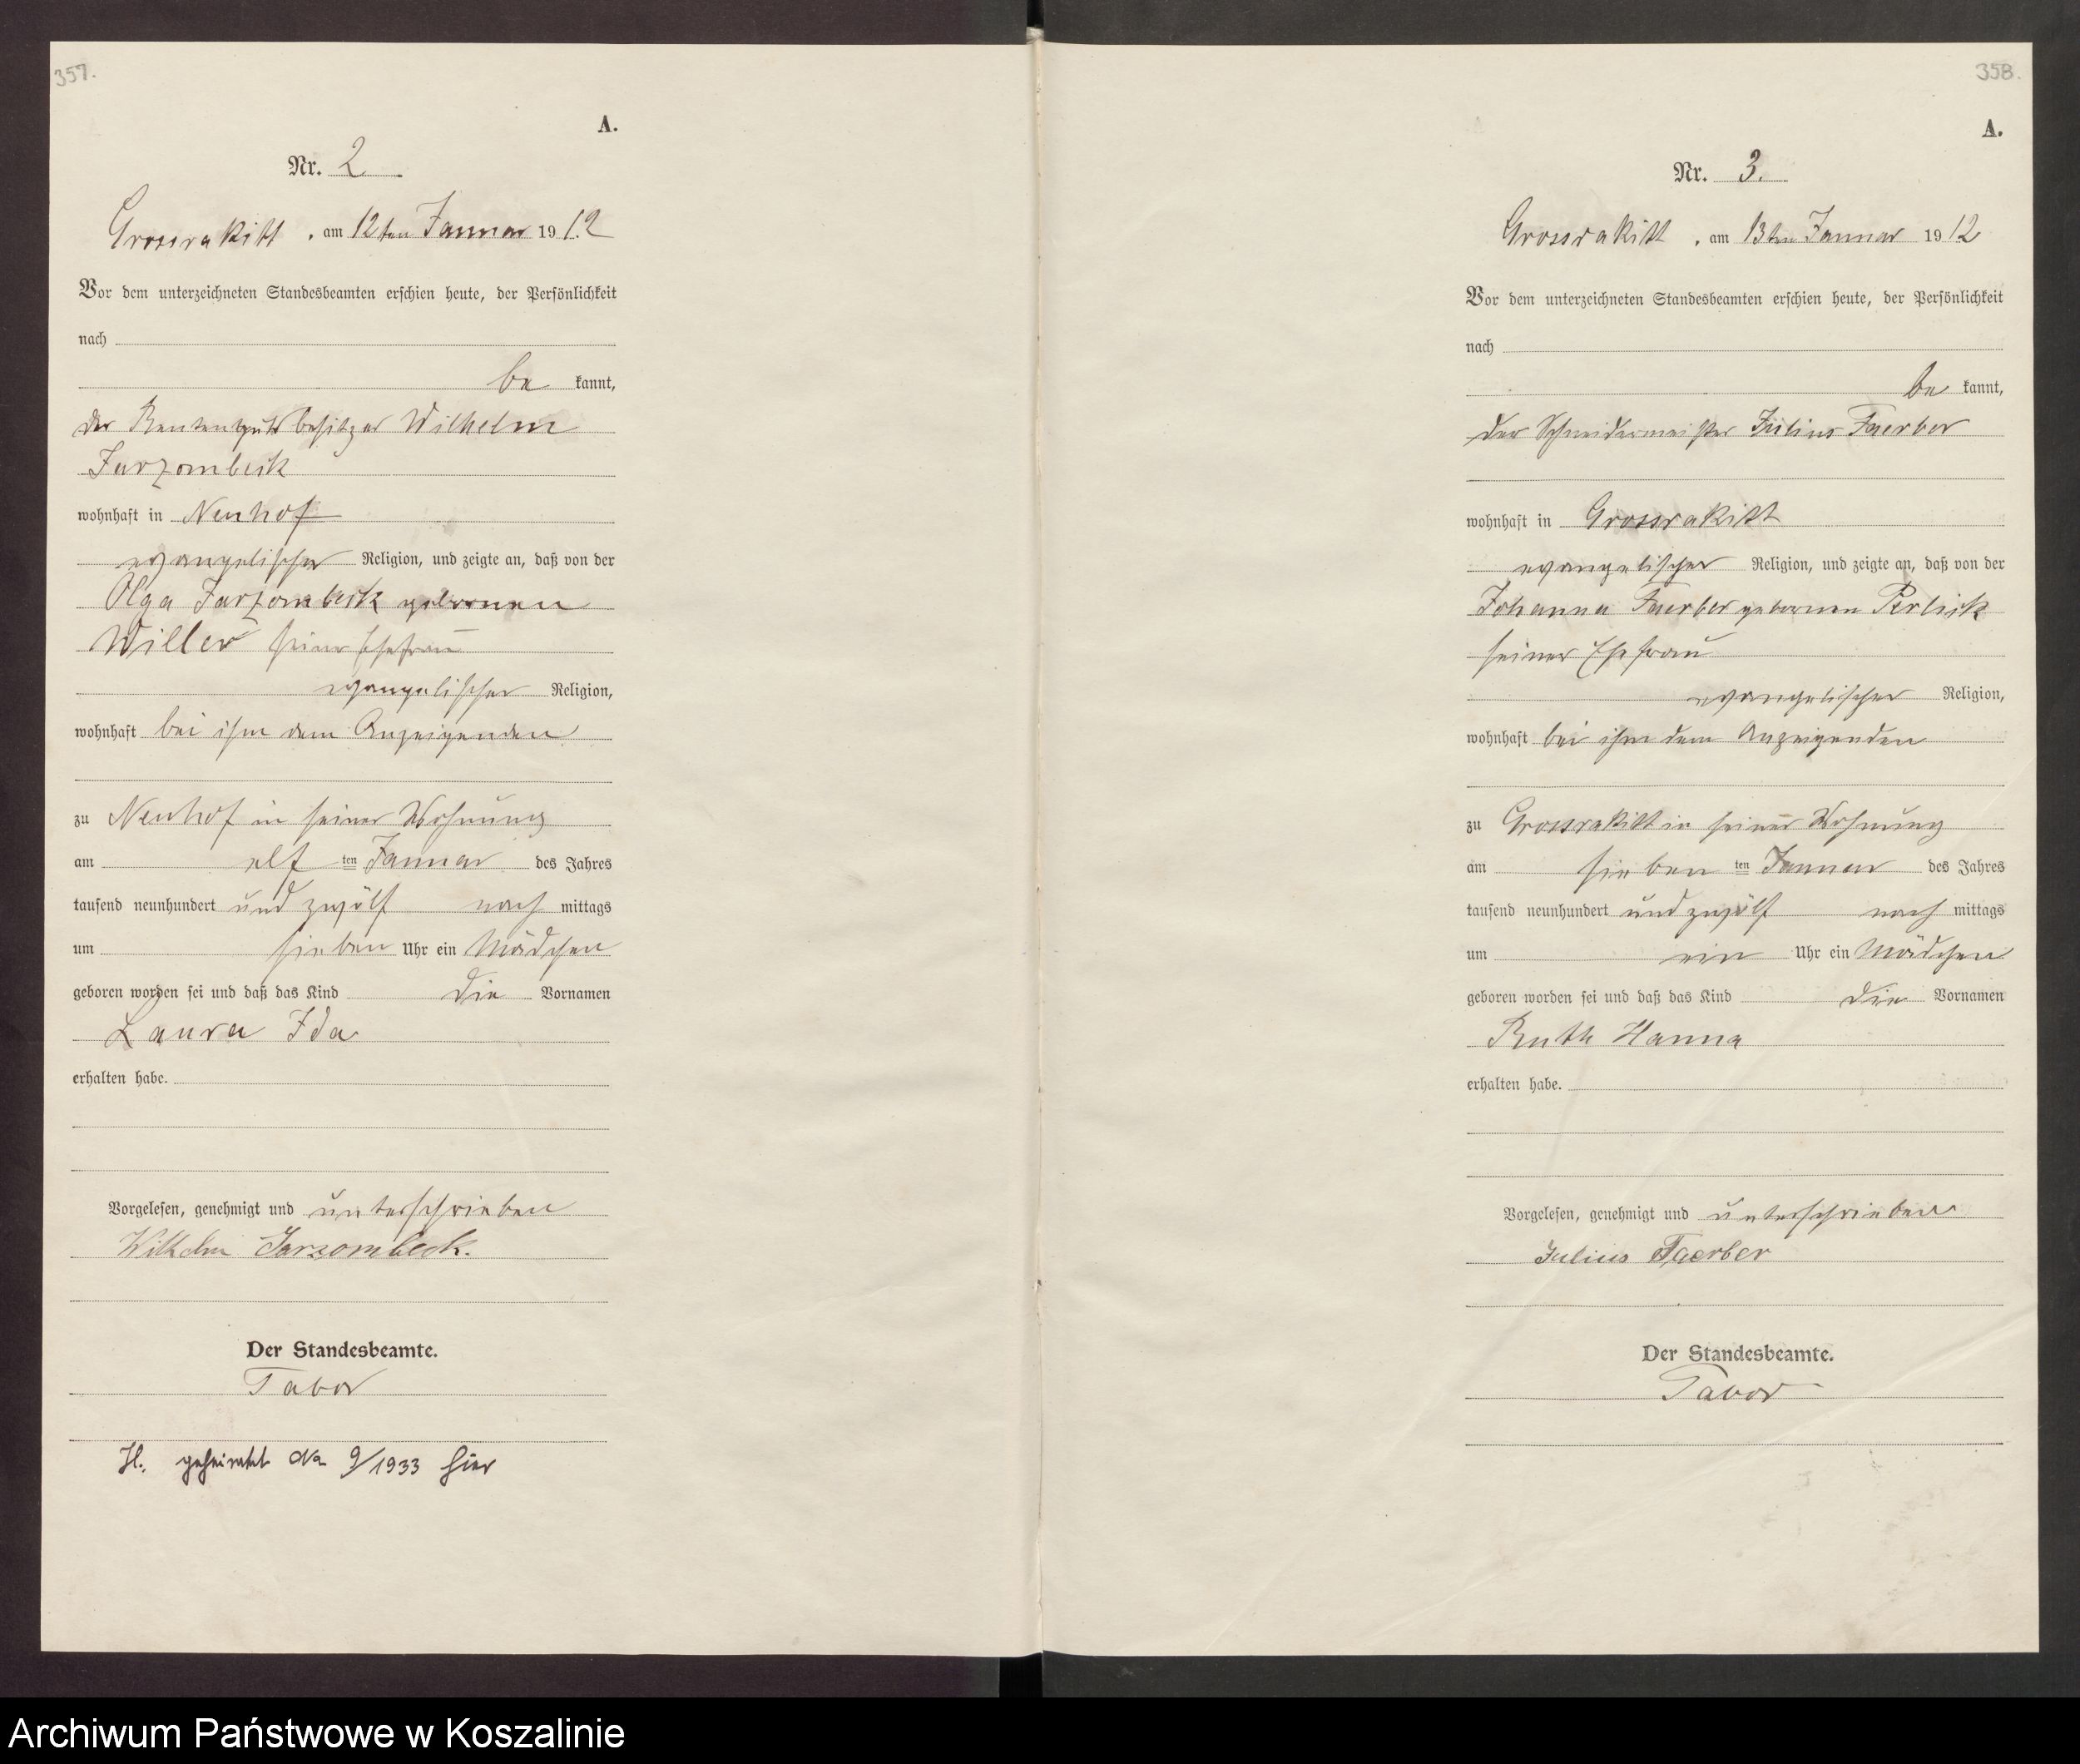 357.
A.
Nr. 2
Grossrakitt, am 12ten Januar 1912
Vor dem unterzeichneten Standesbeamten erschien heute, der Persönlichkeit
nach
be kannt,
der Rentengutsbesitzer Wilhelm
Jarzombeck
wohnhaft in Neuhof
evangelischer Religion, und zeigte an, daß von der
Olga Jarzombeck geborenen
Willer seiner Ehefrau
evangelischer Religion,
wohnhaft bei ihm dem Anzeigenden
zu Neuhof in seiner Wohnung
am elf ten Januar des Jahres
tausend neunhundert und zwölf nach mittags
um sieben Uhr ein Mädchen
geboren worden sei und daß das Kind die Vornamen
Laura Ida
erhalten habe.
Vorgelesen, genehmigt und unterschrieben
Wilhelm Jarzombeck.
Der Standesbeamte.
Tabor
geheiratet No 9/1933 hier
358.
A.
Nr. 3.
Grossrakitt, am 13ten Januar 1912
Vor dem unterzeichneten Standesbeamten erschien heute, der Persönlichkeit
nach
be kannt,
der Schneidermeister Julius Faerber
wohnhaft in Grossrakitt
evangelischer Religion, und zeigte an, daß von der
Johanna Faerber geborenen Perlick
seiner Ehefrau
evangelischer Religion,
wohnhaft bei ihm dem Anzeigenden
zu Grossrakitt in seiner Wohnung
am sieben ten Januar des Jahres
tausend neunhundert und zwölf nach mittags
um ein Uhr ein Mädchen
geboren worden sei und daß das Kind die Vornamen
Ruth Hanna
erhalten habe.
Vorgelesen, genehmigt und unterschrieben
Julius Faerber
Der Standesbeamte.
Tabor
Archiwum Państwowe w Koszalinie